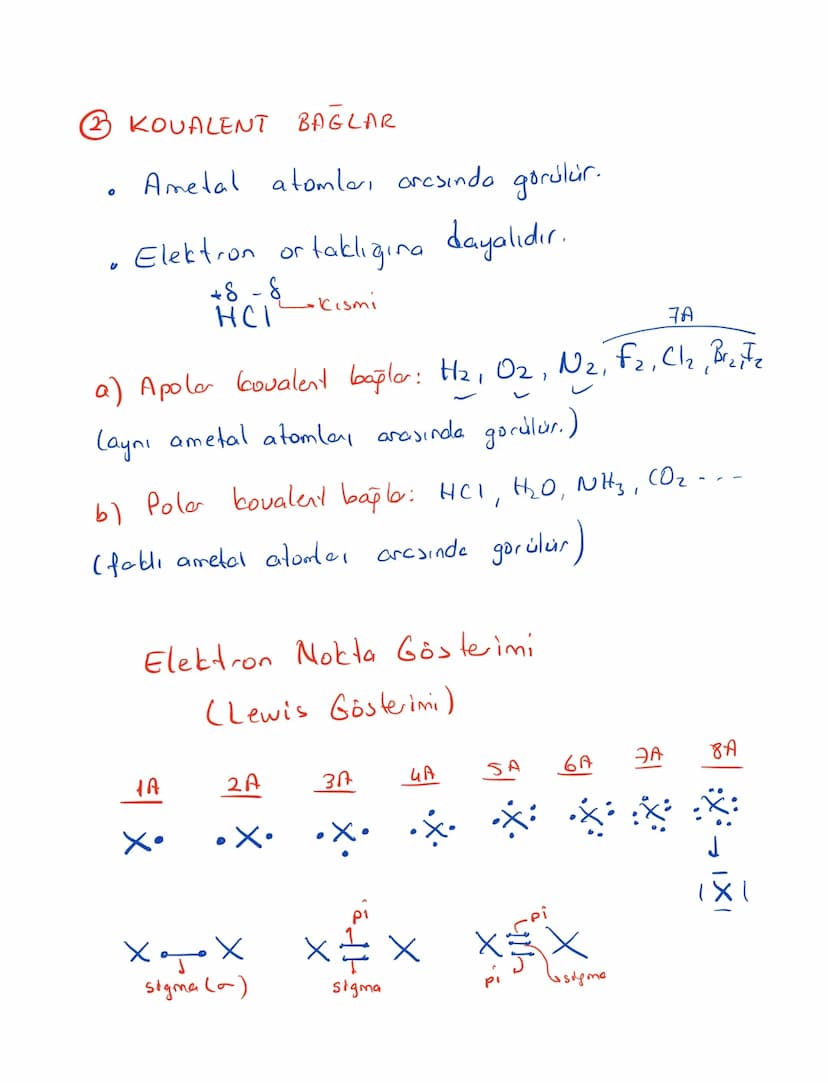 ② KOVALENT BAĞLAR
• Ametal atomları arasında görülür.
• Elektron ortaklığına dayalıdır.
+δ -δ
HCl → Kısmi
7A
a) Apolar kovalent bağlar: H2, O2, N2, F2, Cl2, Br2, I2
(aynı ametal atomları arasında görülür.)
b) Polar kovalent bağlar: HCl, H2O, NH3, CO2 ---
(faklı ametal atomları arasında görülür)
Elektron Nokta Gösterimi
(Lewis Gösterimi)
1A 2A 3A 4A 5A 6A 7A 8A
X X X X X X X X
X
pi pi
X X X X X X
sigma (σ) sigma pi sigma